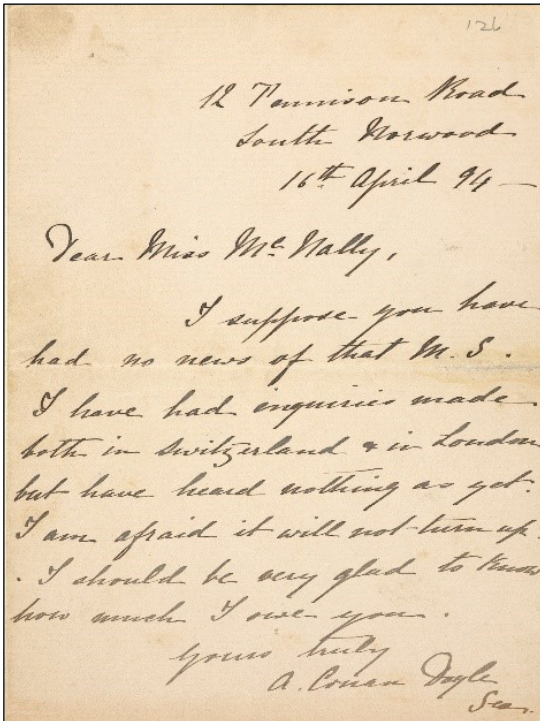 126
12 Tennison Road
South Norwood
16th April 94 —
Dear Miss McNally,
I suppose you have
had no news of that M.S.
I have had enquiries made
both in Switzerland & in London
but have heard nothing as yet.
I am afraid it will not turn up.
. I should be very glad to know
how much I owe you.
Yours truly
A. Conan Doyle